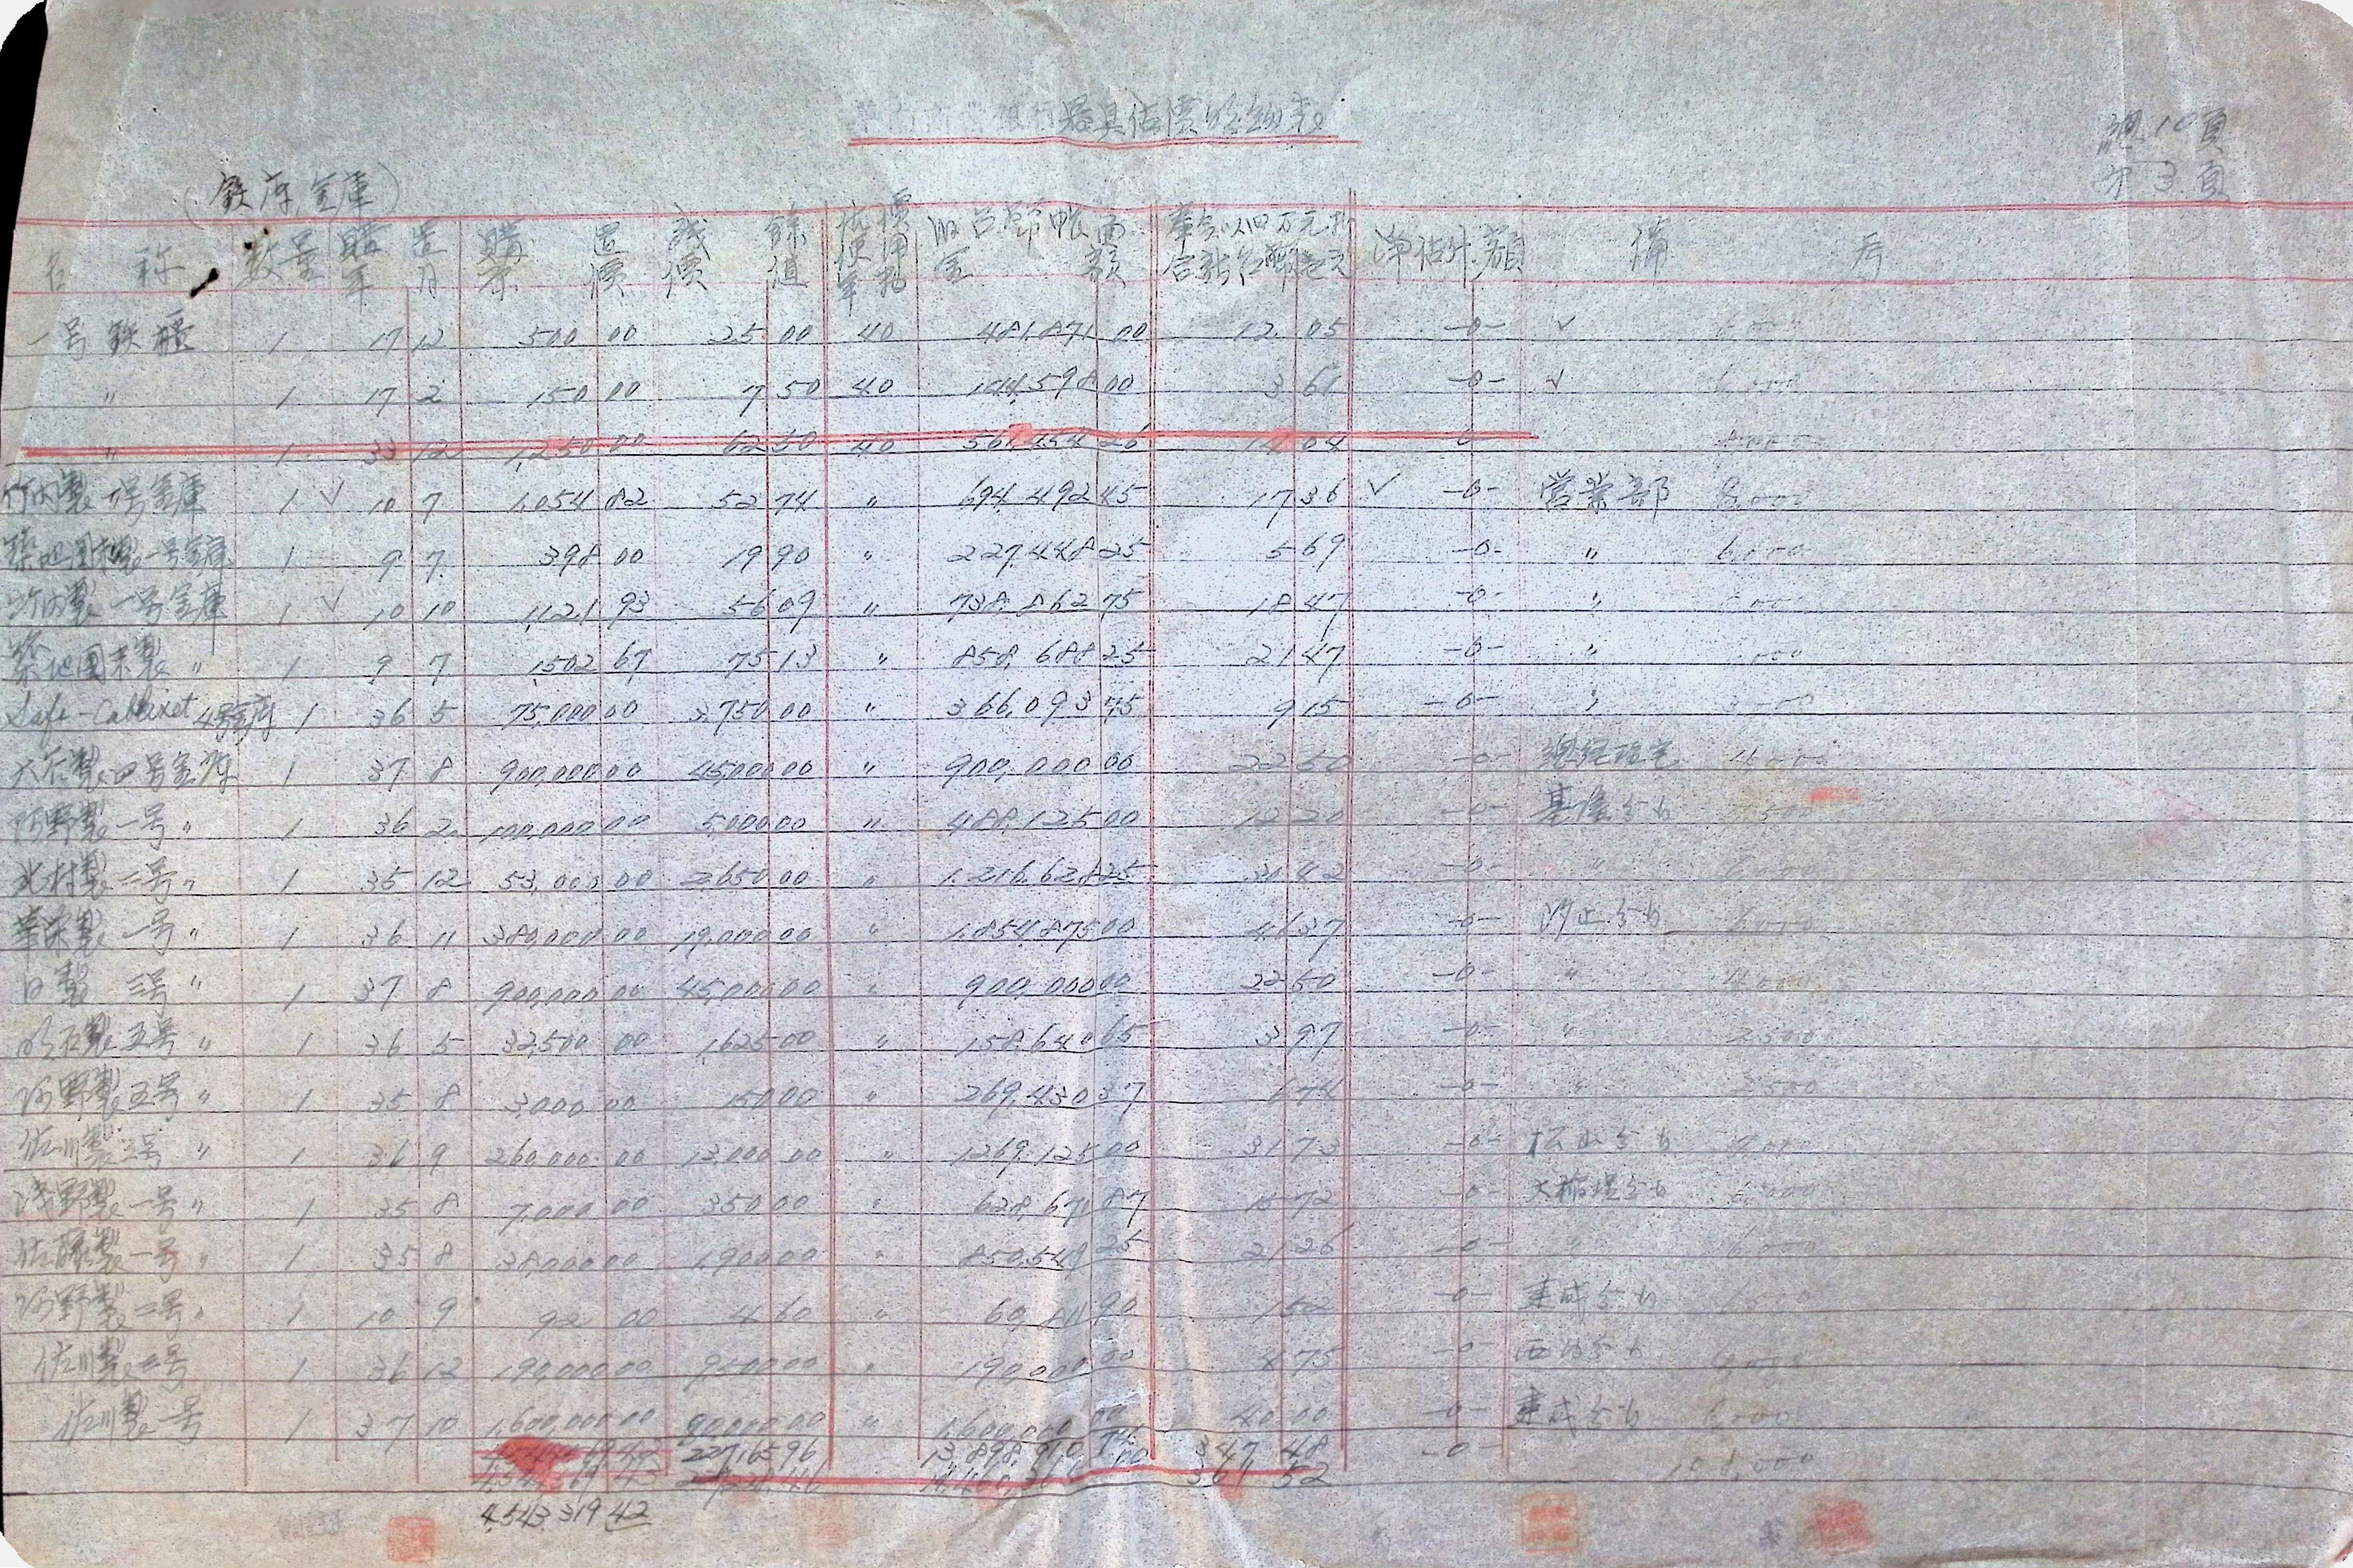 器具估價明細表
總 10 頁
第 3 頁
(鉄庫,金庫)
名 称 数量 購置年月 購置原價 残餘價值 抵價使用年数 旧台幣帳面金額 舊台以四万元折合新台幣壱元 淨估計額 備 考
一号鉄櫃 1 17 12 500 00 25 00 40 481,871 00 12 05 -0- ✓
〃 1 17 2 150 00 7 50 40 144,598 00 3 61 -0- ✓
〃 1 33 12 1,250 00 62 50 40 561,454 26 14 04 -0-
竹内製 一号金庫 1 ✓ 10 7 1,054 82 52 74 〃 694,492 45 17 36 ✓ -0- 営業部 8,000
築地国末製一号金庫 1 9 7 398 00 19 90 〃 227,448 25 5 69 -0- 〃 6,000
竹内製 一号金庫 1 ✓ 10 10 1,121 93 56 09 〃 738,862 75 18 47 -0- 〃
築地国末製 〃 1 9 7 1,502 67 75 13 〃 858,688 25 21 47 -0- 〃
Safe-Cabinet 4号金庫 1 36 5 75,000 00 3,750 00 〃 366,093 75 9 15 -0- 〃
大石製四号金庫 1 37 8 900,000 00 45,000 00 〃 900,000 00 22 50 -0- 總経理室 4,000
河野製一号 〃 1 36 2 100,000 00 5,000 00 〃 488,125 00 12 20 -0- 基隆分行
北村製二号 〃 1 35 12 53,000 00 2,650 00 〃 1,216,628 25 30 42 -0- 〃
華栄製 一号 〃 1 36 11 380,000 00 19,000 00 〃 1,854,875 00 46 37 -0- 汐止分行
日製 三号 〃 1 37 8 900,000 00 45,000 00 〃 900,000 00 22 50 -0- 〃 4,000
明石製五号 〃 1 36 5 32,500 00 1,625 00 〃 158,640 65 3 97 -0- 〃 2,500
河野製五号 〃 1 35 8 3,000 00 150 00 〃 269,430 37 6 74 -0- 〃 2,500
佐川製三号 〃 1 36 9 260,000 00 13,000 00 〃 1,269,125 00 31 73 -0- 松山分行
浅野製一号 〃 1 35 8 7,000 00 350 00 〃 628,671 87 15 72 -0- 大稲埕分行 6,000
佐藤製一号 〃 1 35 8 38,000 00 1,900 00 〃 850,549 25 21 26 -0- 6,000
河野製二号 〃 1 10 9 92 00 4 60 〃 60,811 90 1 52 -0- 建成分行
佐川製二号 1 36 12 190,000 00 9,500 00 〃 190,000 00 4 75 -0- 西門分行
佐川製一号 1 37 10 1,600,000 00 80,000 00 〃 1,600,000 00 40 00 -0- 建成分行 6,000
227,165 96 13,898,910 74 347 48 -0-
361 52
4,543,319 42